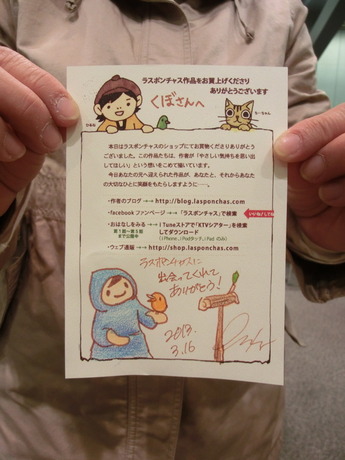 ラスポンチャス作品をお買上げくださり
ありがとうございます
くぼさんへ
本日はラスポンチャスのショップにてお買物くださりありがとう
ございました。この作品たちは、作者が「やさしい気持ちを思い出
してほしい」という想いをこめて描いています。
今日あなたの元へ迎えられた作品が、あなたと、それからあなた
の大切なひとに笑顔をもたらしますように…。
・作者のブログ →→ http://blog.lasponchas.com
・facebook ファンページ →→「ラスポンチャス」で検索
いいね!してね
・おはなしをみる →→ iTuneストアで「KTVシアター」を検索
してダウンロード
第1話〜第5話
まで公開中
(iPhone、iPodタッチ、iPad のみ)
・ウェブ通販 →→ http://shop.lasponchas.com
ラスポンチャスに
出会ってくれて
ありがとう!
2013
3.16